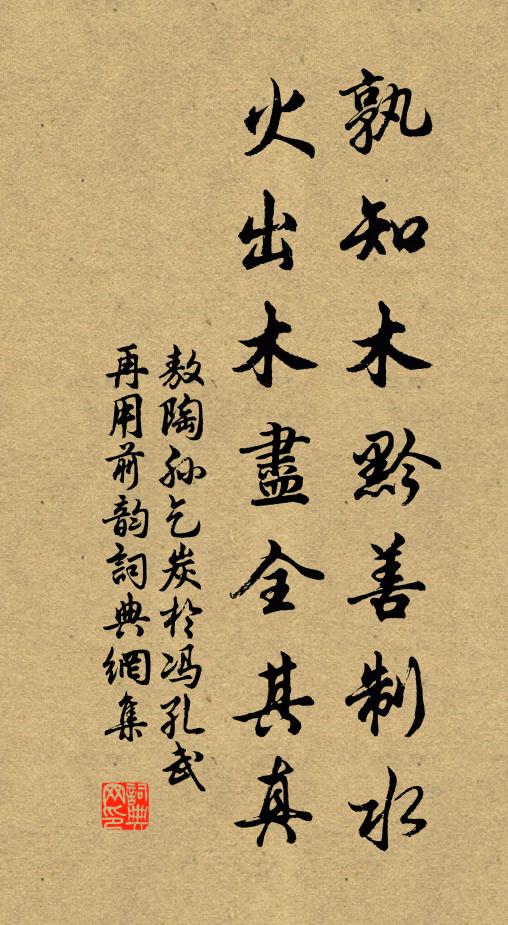 孰知木黔善制水
火出木盡全其真
敖陶孙乞炭於冯孔武
再用前韵詞典網集
詞典网印